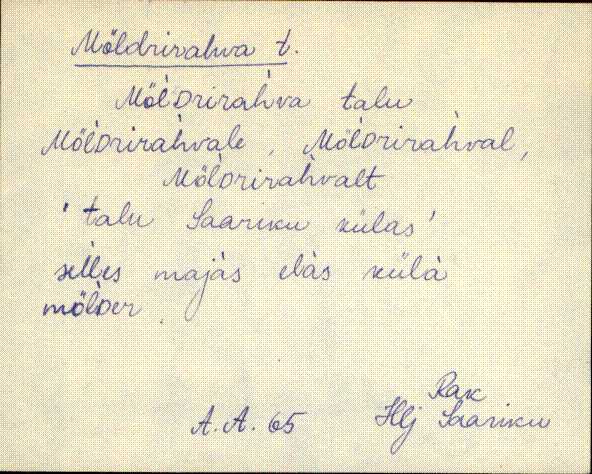 Möldrirahva t.
Mö̀lDrirah̀va talu
Mö̀lDrirah̀vale, Mö̀lDrirah̀val,
Mö̀lDrirah̀valt
'talu Saariku külas'
sèlles majàs elàs külà
mö̀lDer
Rak
A. A. 65 Hlj Saariku